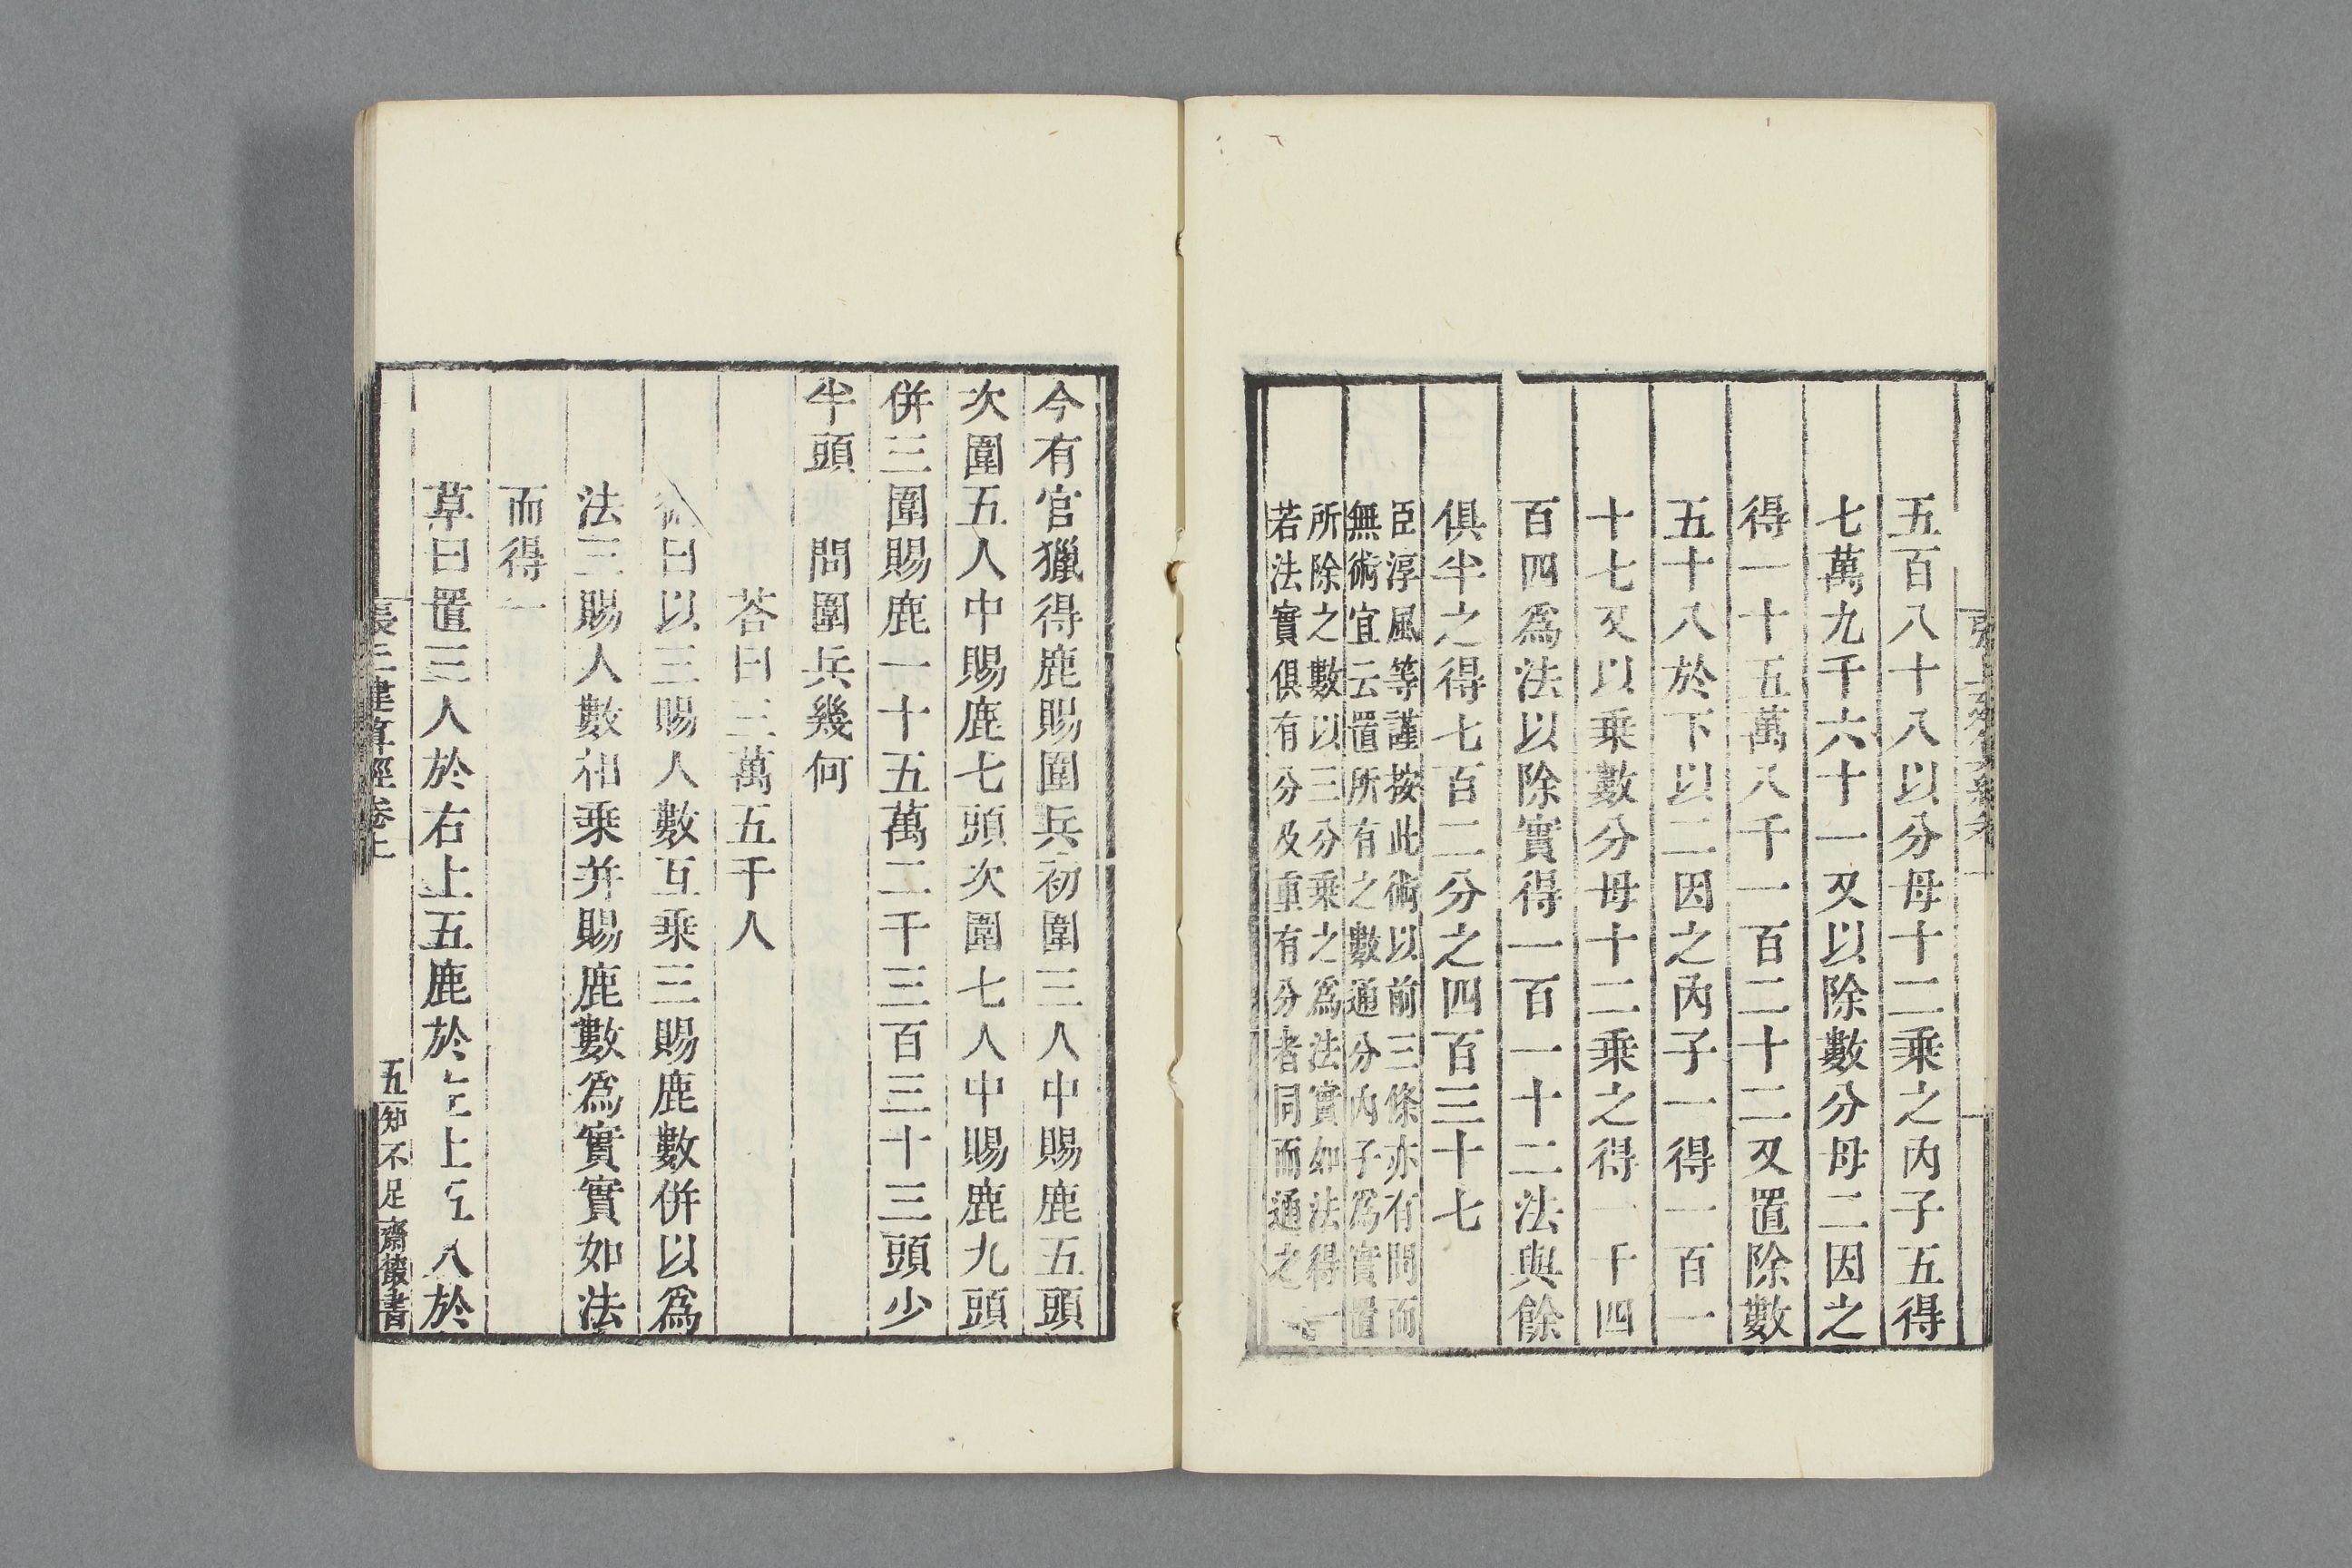 五百八十八以分母十二乘之內子五得
七萬九千六十一又以除數分母二因之
得一十五萬八千一百二十二又置除數
五十八於下以二因之內子一得一百一
十七又以乘數分母十二乘之得一千四
百四爲法以除實得一百一十二法與餘
俱半之得七百二分之四百三十七
臣淳風等謹按此術以前三條亦有問而
無術宜云置所有之數通分內子爲實置
所除之數以三分乘之爲法實如法得一
若法實俱有分及重有分者同而通之
今有官獵得鹿賜圍兵初圍三人中賜鹿五頭
次圍五人中賜鹿七頭次圍七人中賜鹿九頭
併三圍賜鹿一十五萬二千三百三十三頭少
半頭 問圍兵幾何
荅曰三萬五千人
術曰以三賜人數互乘三賜鹿數併以爲
法三賜人數相乘并賜鹿數爲實實如法
而得一
草曰置三人於右上五鹿於左上五人於
張丘建算經卷上
五
知不足齋叢書